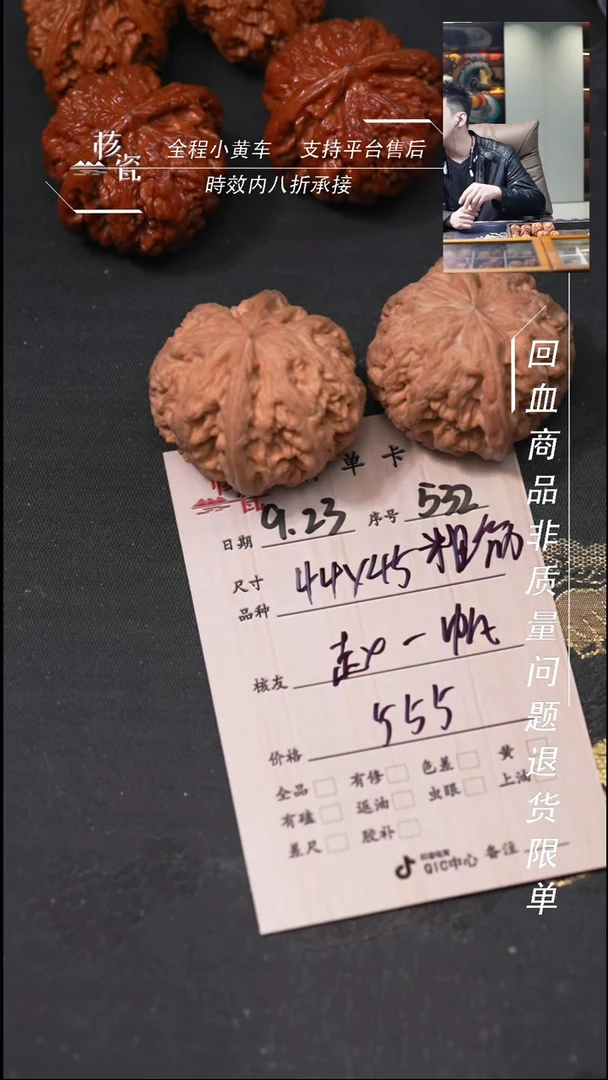 核瓷
全程小黄车 支持平台售后
時效内八折承接
回血商品非质量问题退货限单
单卡
日期 9.23 序号 532
尺寸 44X45 粗筋
品种
核友 赵一帆
价格 555
全品 有修 色差 黄
有磕 返油 虫眼 上油
差尺 胶补
抖音电商
QIC中心 备注